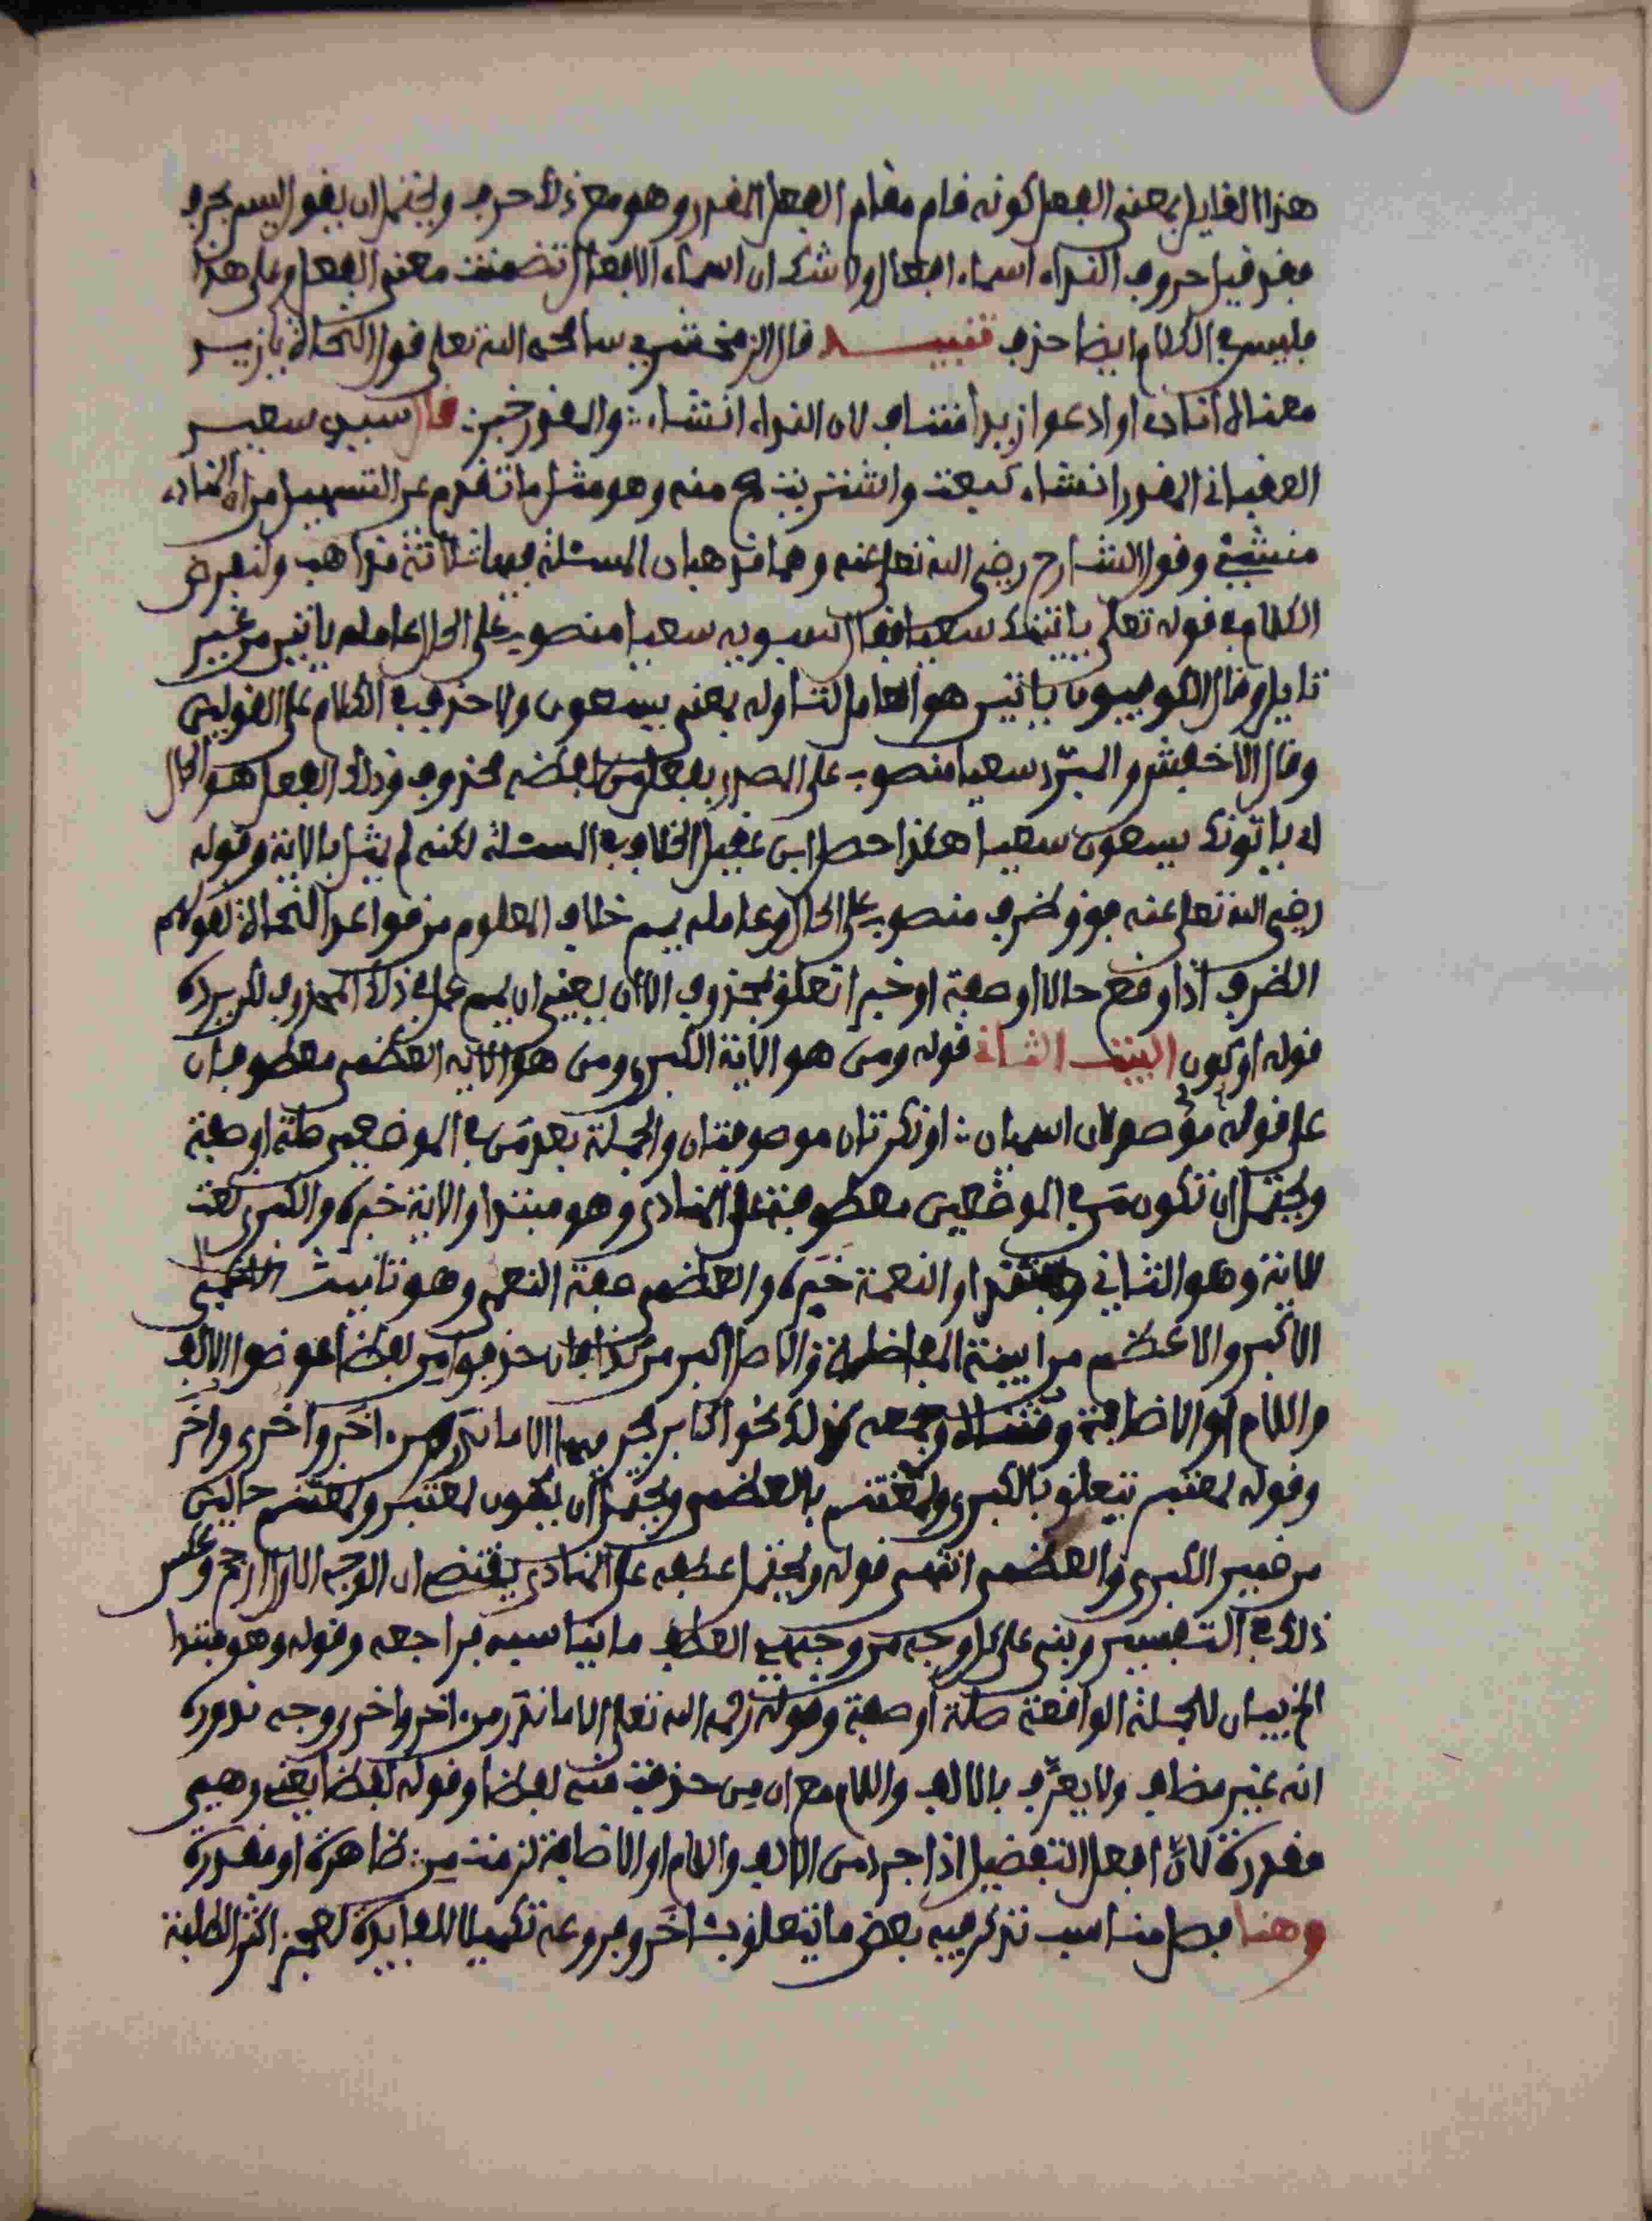 هذا القايل بمعنى الفعل كونه قام مقام الفعل المقدر وهو مع ذلك حرف ويحتمل ان يقول ليس بحرف
فقد قيل حروف النداء اسماء افعال ولا شك ان اسماء الافعال تضمنت معنى الفعل وعلى هذا
فليس في الكلام ايضا حذف تنبيه قال الزمخشري سامحه الله تعلى قول النحاة يا زيد
معناه انادي او ادعوا زيدا فيه تساف لان النداء انشاء والمقدر خبر قال سيدي سعيد
العقباني المقدر انشاء كبعت واشتريت ه منه وهو مثل ما تقدم عن التسهيل من ان المنادي
منشئ وقول الشارح رضي الله تعلى عنه وهما مذهبان المسئلة فيها ثلاثة مذاهب ولنفرض
الكلام في قوله تعلى ياتينك سعيا فقال سيبويه سعيا منصوب على الحال عامله ياتين من غير
تاويل وقال الكوفيون ياتين هو العامل لتاوله بمعنى يسعون ولا حذف في الكلام على القولين
وقال الاخفش والمبرد سعيا منصوب على المصدر بفعل من لفظه محذوف وذلك الفعل هو الحال
اي ياتونك يسعون سعيا هكذا حصل ابن عقيل الخلاف في المسئلة لكنه لم يمثل بالاية وقوله
رضي الله تعلى عنه فوق ظرف منصوب على الحال وعامله يسم خلاف المعلوم من قواعد النحاة لقولهم
الظرف اذا وقع حالا او صفة او خبرا تعلق بمحذوف الا ان يعني ان يسم عمل في ذلك المحذوف لكن يرده
قوله او يكون البيت الثاني قوله ومن هو الاية الكبرى ومن هو الاية العظمى معطوفان
على قوله موصولان اسميان او نكرتان موصوفتان والجملة بعد من في الموضعين صلة او صفة
ويحتمل ان تكون من في الموضعين معطوفة على المنادى وهو مبتدا والاية خبره والكبرى نعت
للاية وهو الثاني مبتدا والنعمة خبره والعظمى صفة النعمى وهو تانيث
الاكبر والاعظم من ابنية المفاضلة والاصل اكبر من كذا فان حذفوا من لفظا عوضوا الالف
واللام او الاضافة ومثناه وجمعه كذلك نحو اكابر مجرميها الا ما ندر من اخر واخرى واخر
وقوله لمعتبر يتعلق بالكبرى ولمغتنم بالعظمى ويحتمل ان يكون لمعتبر ولمغتنم حالين
من ضمير الكبرى والعظمى انتهى قوله ويحتمل عطفه على المنادى يقتضي ان الوجه الاول ارجح وعكس
ذلك في التفسير وبنى على كل وجه من وجهي العطف ما يناسبه فراجعه وقوله وهو مبتدا
الخ بيان للجملة الواقعة صلة او صفة وقوله رحمه الله تعلى الا ما ندر من اخر واخر وجه ندوره
انه غير مضاف ولا يعرف بالالف واللام مع ان من حذفت منه لفظا وقوله لفظا يعني وهي
مقدرة لان افعل التفضيل اذا جرد من الالف واللام او الاضافة لزمت من ظاهرة او مقدرة
وهنا فصل مناسب نذكر فيه بعض ما يتعلق باخر وفروعه تكميلا للفايدة لعجز اكثر الطلبة